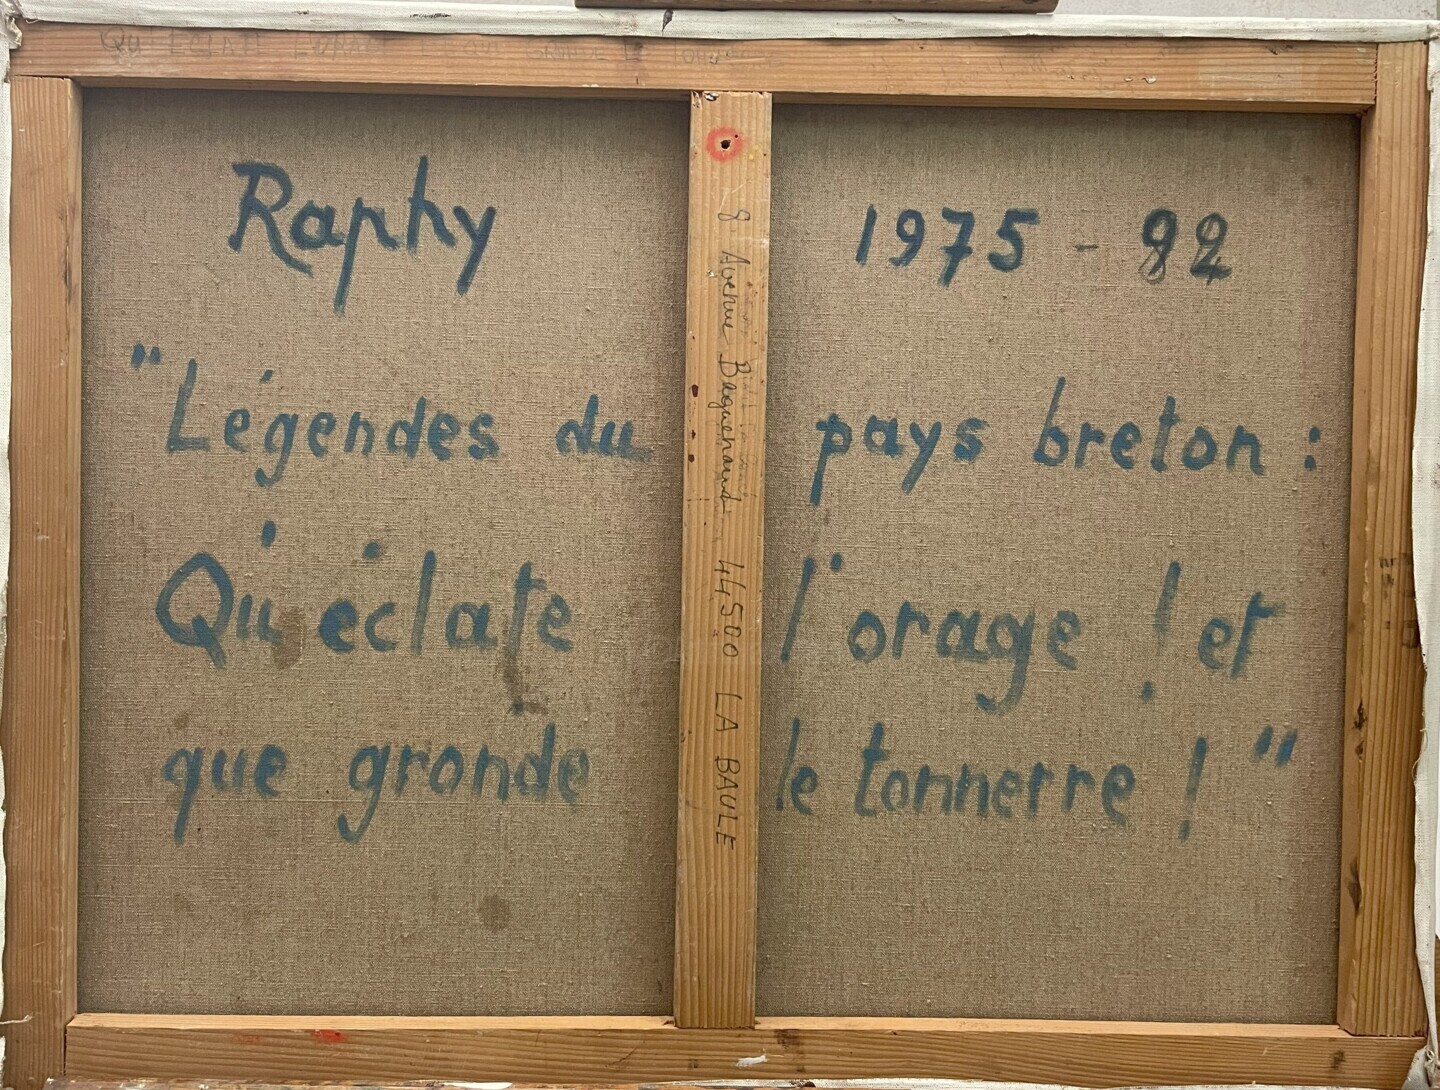 Raphy 1975 - 82
"Légendes du pays breton :
Qu'éclate l'orage ! et
que gronde le tonnerre ! "
8 Avenue Baguenaud. 44500 LA BAULE
QU'ECLATE L'ORAGE